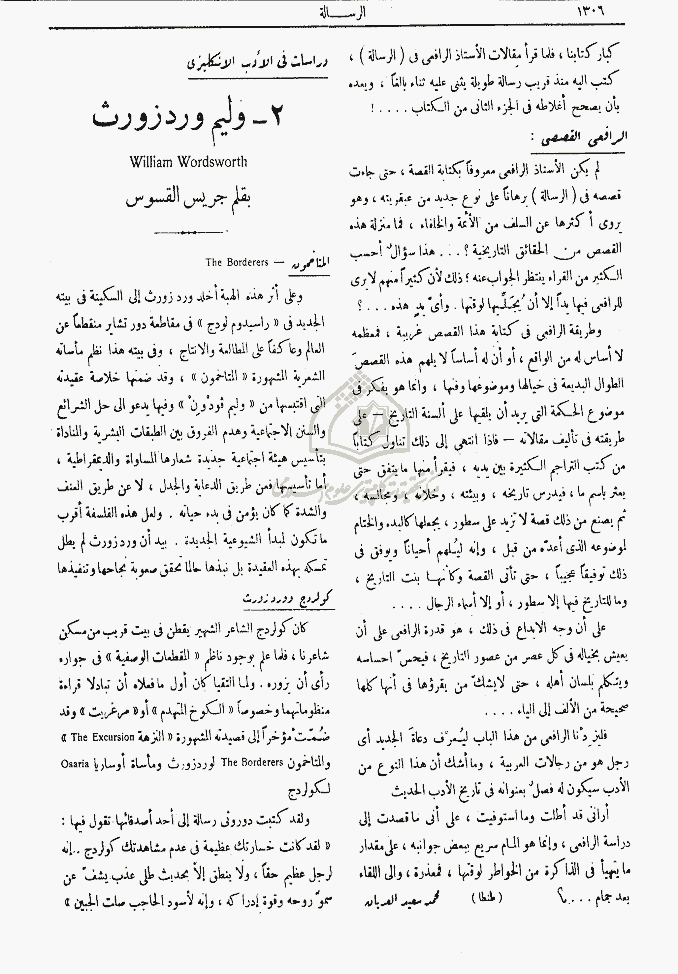 ١٣٠٦
الرسالة
كبار كتابنا ، فلما قرأ مقالات الأستاذ الرافعى فى ( الرسالة ) ،
كتب اليه منذ قريب رسالة طويلة يثنى عليه ثناء بالغاً ، وبعده
بأن يصحح أغلاطه فى الجزء الثانى من الكتاب .... !
الرافعى القصصى :
لم يكن الأستاذ الرافعى معروفاً بكتابة القصة ، حتى جاءت
قصصه فى ( الرسالة ) برهاناً على نوع جديد من عبقريته ، وهو
يروى أكثرها عن السلف من الأئمة والخلفاء ، فما منزلة هذه
القصص من الحقائق التاريخية ؟ ... هذا سؤال أحسب
الكثير من القراء ينتظر الجواب عنه ؛ ذلك لأن كثيراً منهم لا يرى
للرافعى فيها يداً إلا أن يُجَلّيها لوقتها . وأى يدٍ هذه ....؟
وطريقة الرافعى فى كتابة هذا القصص غريبة ، فمعظمه
لا أساس له من الواقع ، أو أن له أساساً لا يلهم هذه القصص
الطوال البديعة فى خيالها وموضوعها وفنها ، وانما هو يفكر فى
موضوع الحكمة التى يريد أن يلقيها على ألسنة التاريخ — على
طريقته فى تأليف مقالاته — فاذا انتهى إلى ذلك تناول كتاباً
من كتب التراجم الكثيرة بين يديه ، فيقرأ منها ما يتفق حتى
يعثر باسم ما ، فيدرس تاريخه ، وبيئته ، وخلانه ، ومجالسه ،
ثم يصنع من ذلك قصة لا تزيد على سطور ، يجعلها كالبدء والختام
لموضوعه الذى أعدّه من قبل ، وإنه ليُلهم أحياناً ويوفق فى
ذلك توفيقاً عجيباً ، حتى تأتى القصة وكأنها بنت التاريخ ،
وما للتاريخ فيها إلا سطور ، أو إلا أسماء الرجال ....
على أن وجه الابداع فى ذلك ، هو قدرة الرافعى على أن
يعيش بخياله فى كل عصر من عصور التاريخ ، فيحسّ احساسه
ويتكلم بلسان أهله ، حتى لا يشكّ من يقرؤها فى أنها كلها
صحيحة من الألف إلى الياء ....
فليزدنا الرافعى من هذا الباب ليُعرّف دعاة الجديد أى
رجل هو من رجالات العربية ، وما أشك أن هذا النوع من
الأدب سيكون له فصل بعنوانه فى تاريخ الأدب الحديث
أرانى قد أطلت وما استوفيت ، على أنى ما قصدت إلى
دراسة الرافعى ، وإنما هو المام سريع ببعض جوانبه ، على مقدار
ما يتهيأ فى الذاكرة من الخواطر لوقتها ، فمعذرة ، والى اللقاء
بعد جمام ....؟ ( طنطا ) محمد سعيد العريان
دراسات فى الأدب الانكليزى
٢ - وليم وردزورث
William Wordsworth
بقلم جريس القسوس
المتاخمون — The Borderers
وعلى أثر هذه الهبة أخلد وردزورث إلى السكينة فى بيته
الجديد فى « راسيدوم لودج » فى مقاطعة دور تشاير منقطعاً عن
العالم وعاكفاً على المطالعة والانتاج ، وفى بيته هذا نظم مأساته
الشعرية المشهورة « المتاخمون » ، وقد ضمنها خلاصة عقيدته
التى اقتبسها من « وليم قودون » وفيها يدعو الى حل الشرائع
والسنن الاجتماعية وهدم الفروق بين الطبقات البشرية والمناداة
بتأسيس هيئة اجتماعية جديدة شعارها المساواة والديمقراطية ،
أما تأسيسها فمن طريق الدعاية والجدل ، لا عن طريق العنف
والشدة كما كان يؤمن فى بدء حياته . ولعل هذه الفلسفة أقرب
ما تكون لمبدأ الشيوعية الجديدة . بيد أن وردزورث لم يطل
تمسكه بهذه العقيدة بل نبذها حالما تحقق صعوبة نجاحها وتنفيذها
كولردج ووردزورث
كان كولردج الشاعر الشهير يقطن فى بيت قريب من مسكن
شاعرنا ، فلما علم بوجود ناظم « المقطعات الوصفية » فى جواره
رأى أن يزوره . ولما التقيا كان أول ما فعلاه أن تبادلا قراءة
منظوماتهما وخصوصاً « الكوخ المتهدم » أو « مرغريت » وقد
ضُمّت مؤخراً إلى قصيدته المشهورة « النزهة The Excursion »
والتاخمون The Borderers لوردزورث ومأساة أوساريا Osaria
لكولردج
ولقد كتبت دوروثى رسالة إلى أحد أصدقائها تقول فيها :
« لقد كانت خسارتك عظيمة فى عدم مشاهدتك كولردج .. إنه
لرجل عظيم حقاً ، ولا ينطق إلاّ بحديث طلى عذب يشفّ عن
سموّ روحه وقوة إدراكه ، وإنه لأسود الحاجب صلت الجبين »